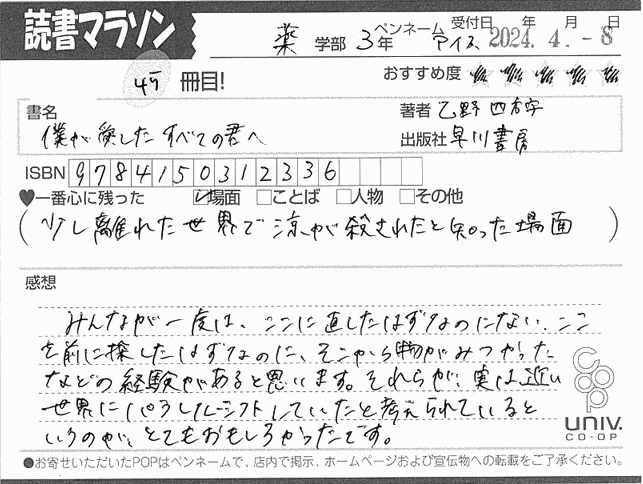 読書マラソン
薬 学部 3年 ペンネーム アイス 受付日 年 月 日 2024. 4. -8
45 冊目! おすすめ度 ★★★★★
書名 著者 乙野四方字
僕が愛したすべての君へ 出版社 早川書房
ISBN 9784150312336
♥一番心に残った ☑場面 □ことば □人物 □その他
(少し離れた世界で涼が殺されたと知った場面)
感想
みんなが一度は、ここに直したはずなのにない、ここ
を前に探したはずなのに、そこから物がみつかった
などの経験があると思います。それらが、実は近い
世界にパラレルシフトしていたと考えられていると
いうのが、とてもおもしろかったです。
coop
UNIV.
CO-OP
●お寄せいただいたPOPはペンネームで、店内で掲示、ホームページおよび宣伝物への転載をご了承ください。